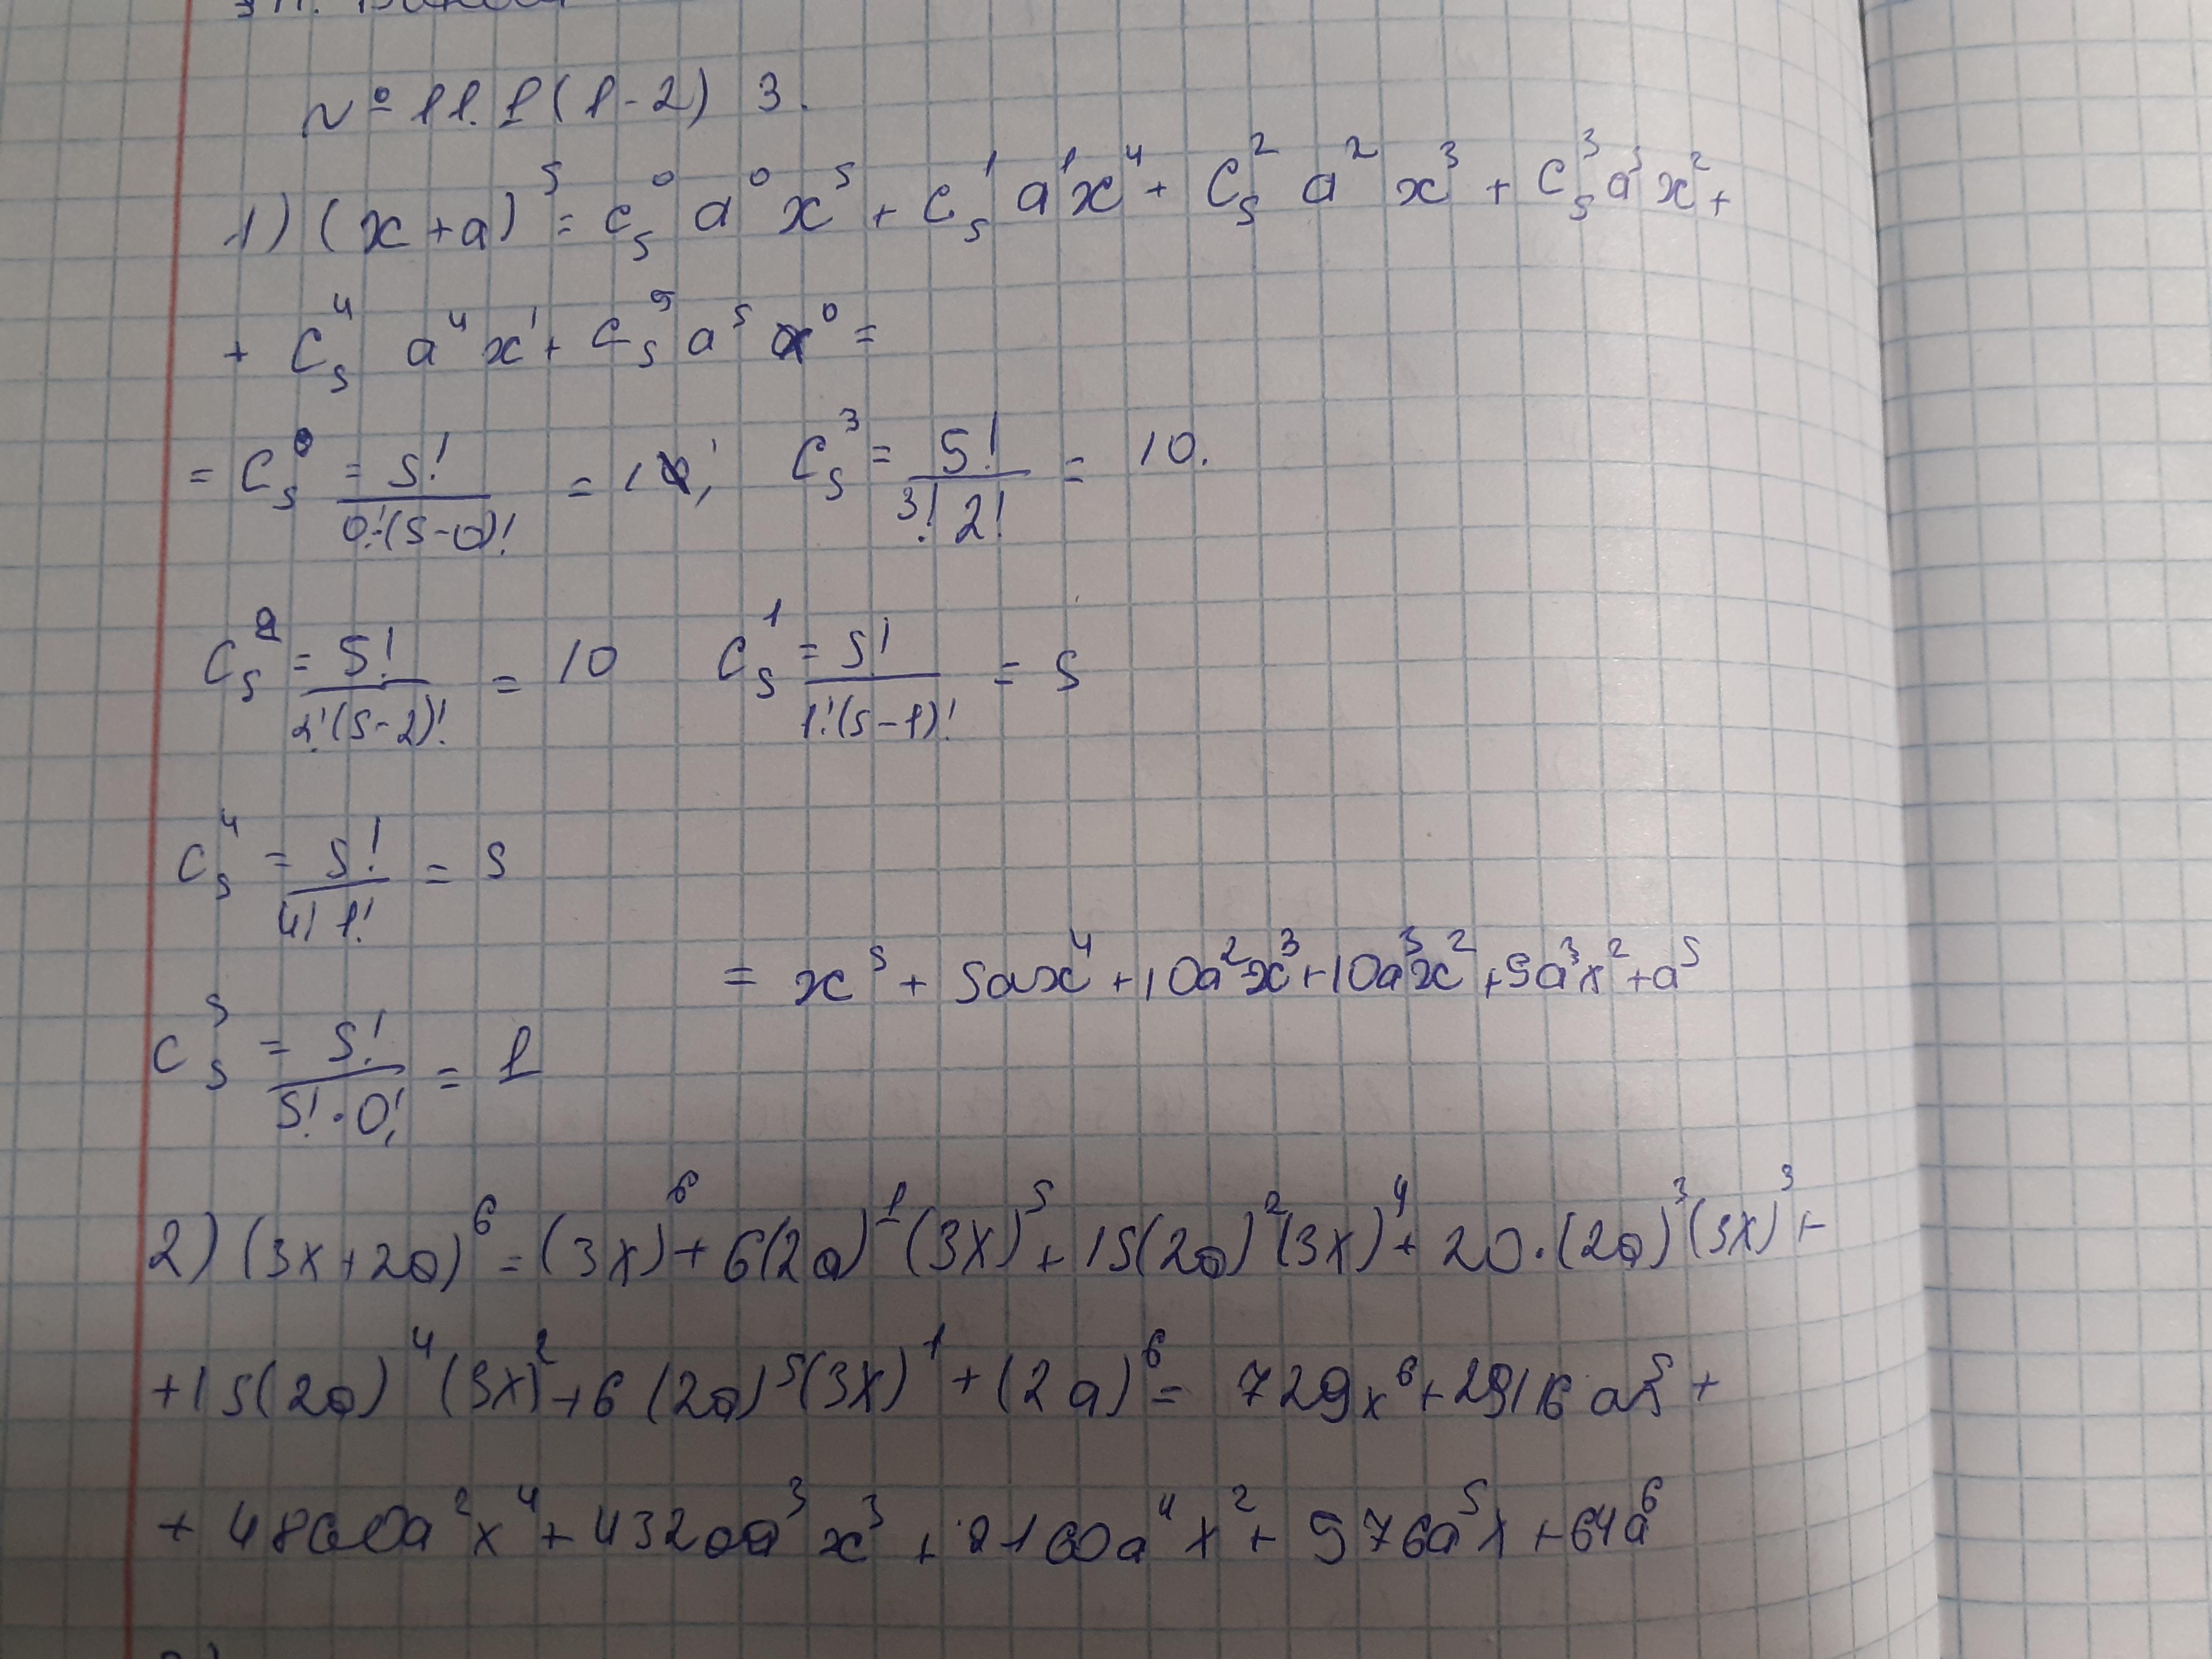 № 11.1(1-2) 3.
1) (x+a)⁵ = C₅⁰ a⁰ x⁵ + C₅¹ a¹x⁴ + C₅² a² x³ + C₅³ a³ x² +
+ C₅⁴ a⁴ x¹ + C₅⁵ a⁵ x⁰ =
= C₅⁰ = 5!/(0!·(5-0)!) = 1; C₅³ = 5!/(3! 2!) = 10.
C₅² = 5!/(2!·(5-2)!) = 10 C₅¹ = 5!/(1!·(5-1)!) = 5
C₅⁴ = 5!/(4! 1!) = 5
= x⁵ + 5ax⁴ + 10a²x³ + 10a³x² + 5a³x² + a⁵
C₅⁵ = 5!/(5!·0!) = 1
2) (3x+2a)⁶ = (3x)⁶ + 6(2a)¹(3x)⁵ + 15(2a)²(3x)⁴ + 20·(2a)³(3x)³ +
+15(2a)⁴(3x)² + 6(2a)⁵(3x)¹ + (2a)⁶ = 729x⁶ + 2916 ax⁵ +
+ 4860a²x⁴ + 4320a³x³ + 2160a⁴x² + 576a⁵x + 64a⁶